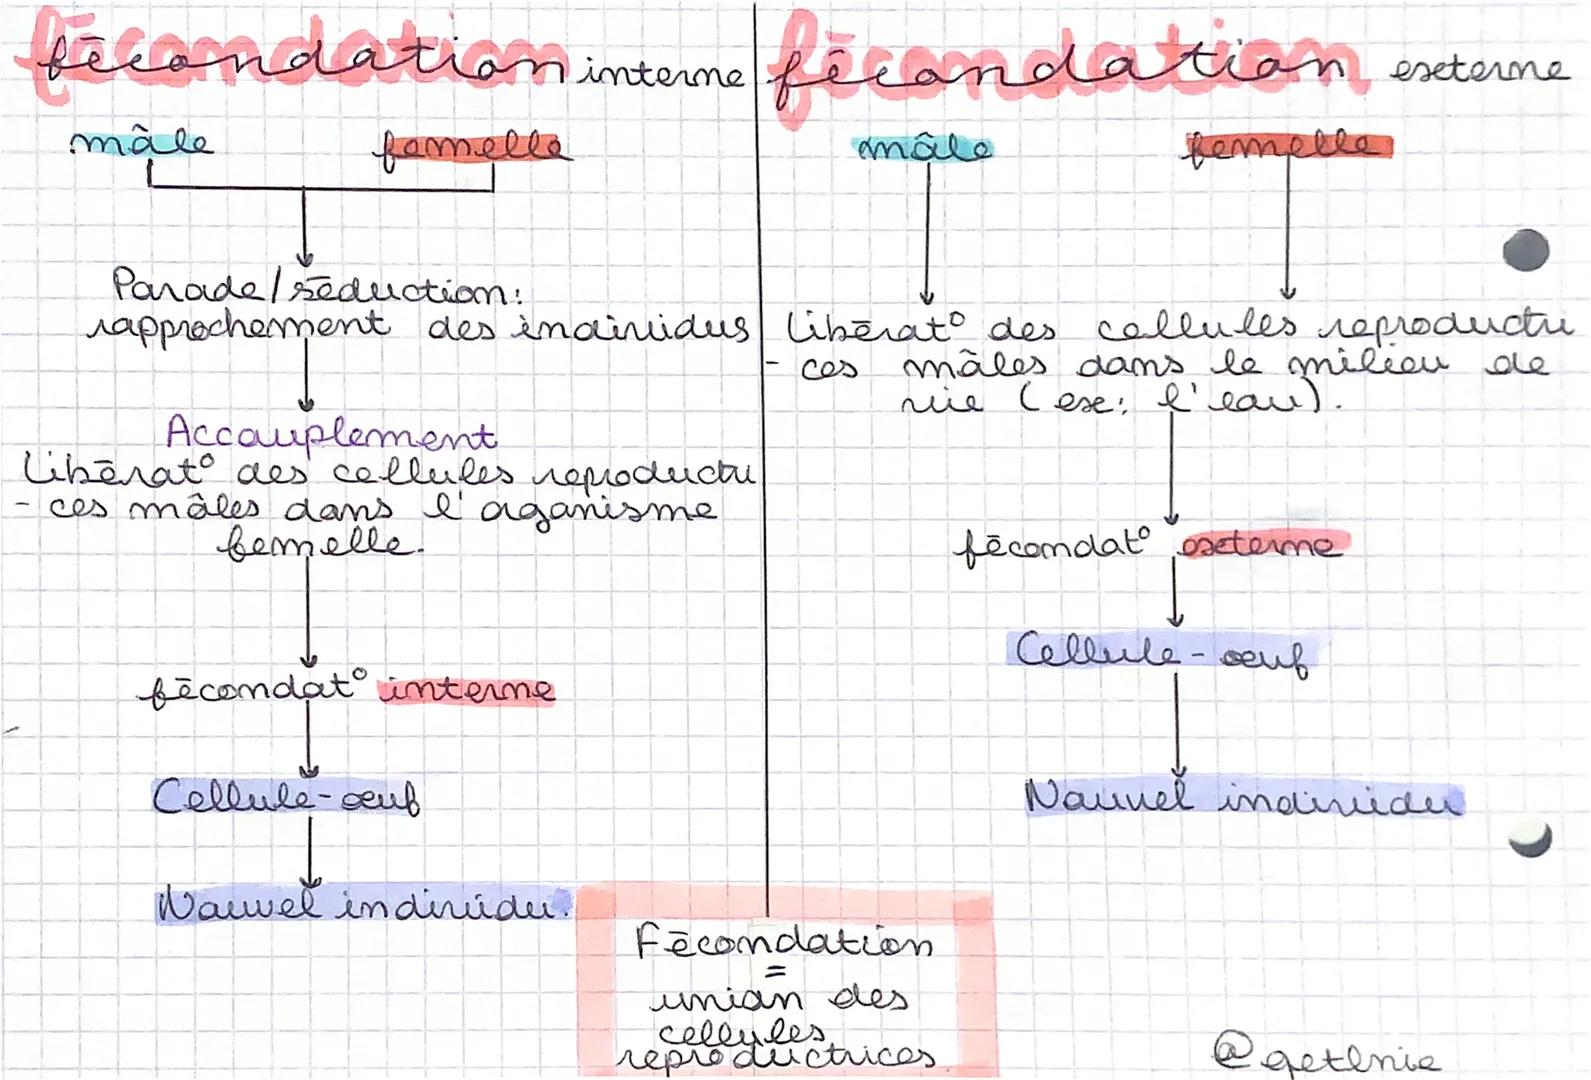 fécondation interne
mâle femelle
Parade/séduction:
rapprochement des individus
Accouplement
Libérat° des cellules reproductri
- ces mâles dans l'organisme
femelle.
fécondat° interne
Cellule-œuf
Nouvel individu.
fécondation externe
mâle femelle
Libérat° des cellules reproductri
- ces mâles dans le milieu de
vie (ex: l'eau).
fécondat° externe
Cellule-œuf
Nouvel individu
Fécondation
=
union des
cellules
reproductrices